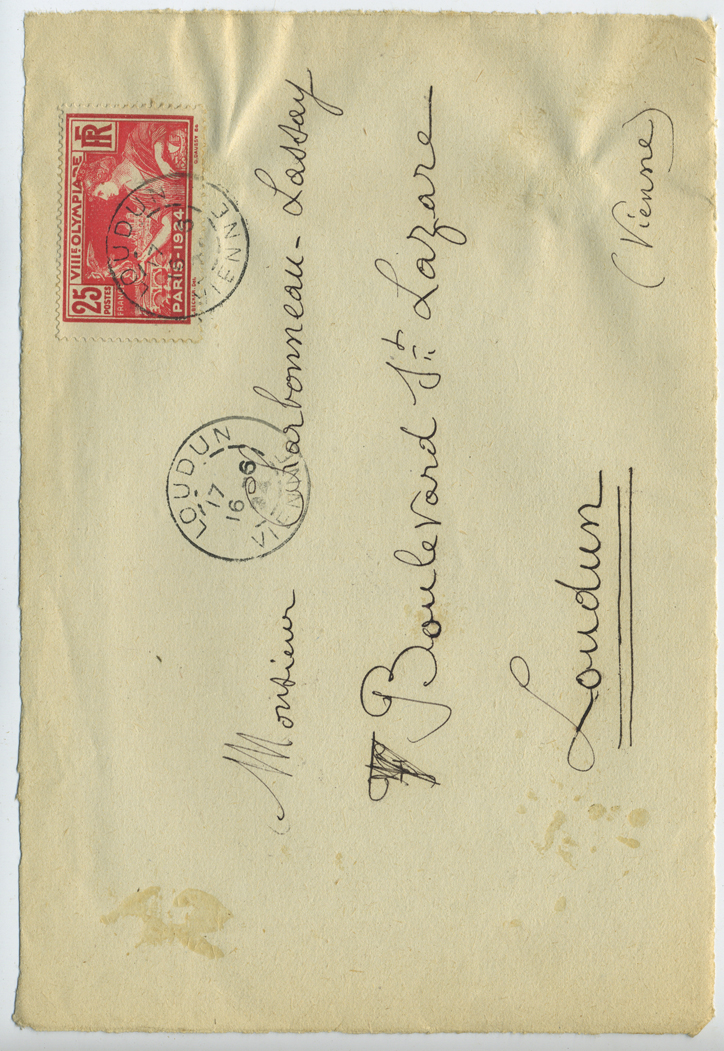 25 POSTES VIIIE OLYMPIADE RF
FRANCE
PARIS-1924
LOUDUN
VIENNE
LOUDUN
17
16 - 6
VIENNE
Monsieur Charbonneau-Lassay
Boulevard St Lazare
Loudun
(Vienne)